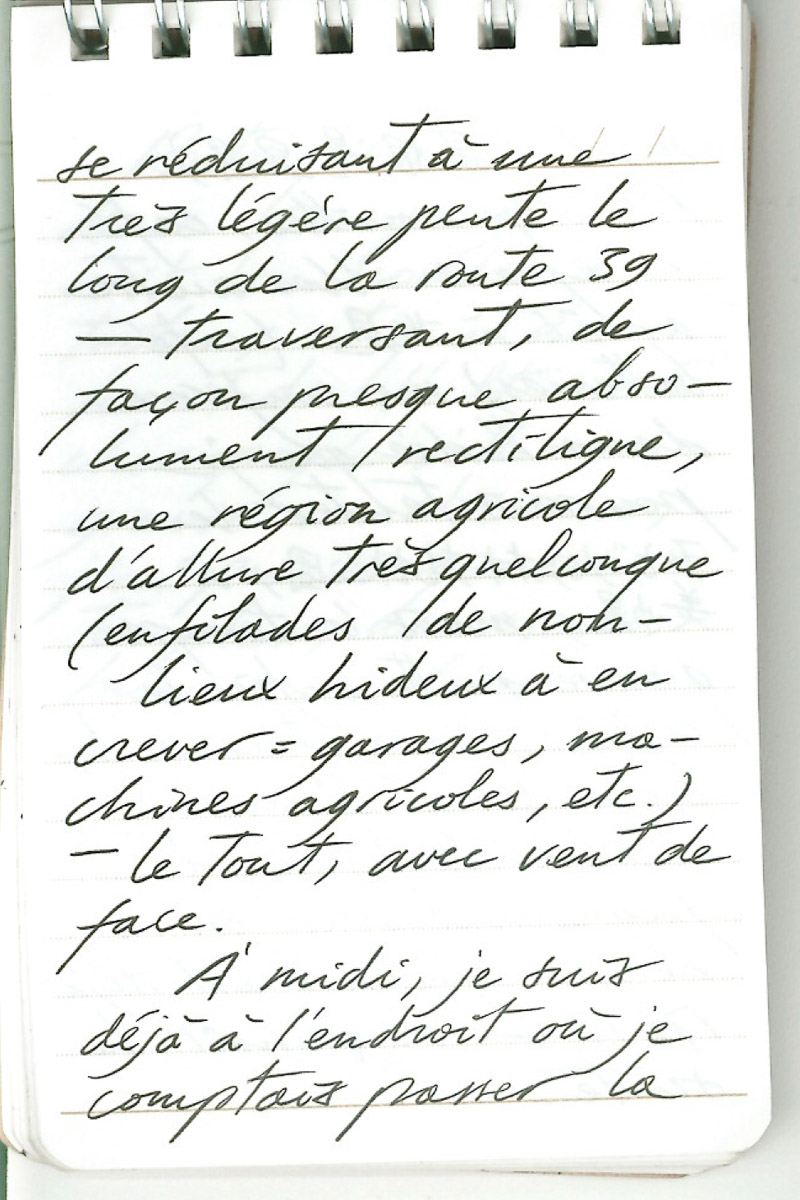 se réduisant à une
très légère pente le
long de la route 39
— traversant, de
façon presque abso-
lument rectiligne,
une région agricole
d'allure très quelconque
(enfilades de non-
lieux hideux à en
crever = garages, ma-
chines agricoles, etc.)
— le tout, avec vent de
face.
À midi, je suis
déjà à l'endroit où je
comptais passer la